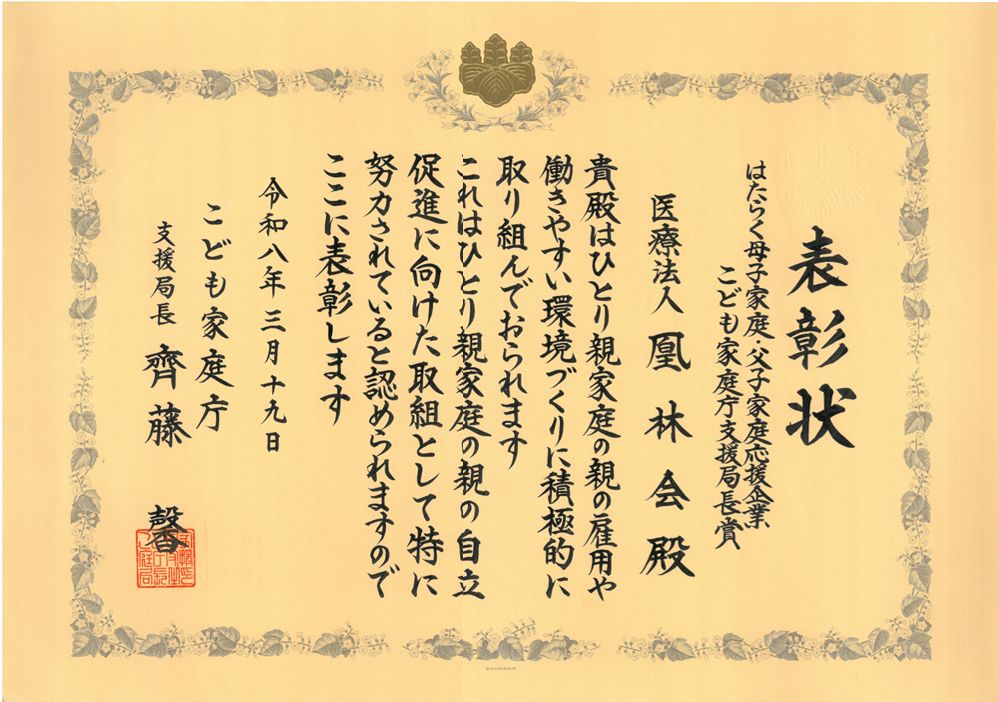 表彰状
はたらく母子家庭・父子家庭応援企業
こども家庭庁支援局長賞
医療法人 凰林会殿
貴殿はひとり親家庭の親の雇用や
働きやすい環境づくりに積極的に
取り組んでおられます
これはひとり親家庭の親の自立
促進に向けた取組として特に
努力されていると認められますので
ここに表彰します
令和八年三月十九日
こども家庭庁
支援局長 齊藤 馨